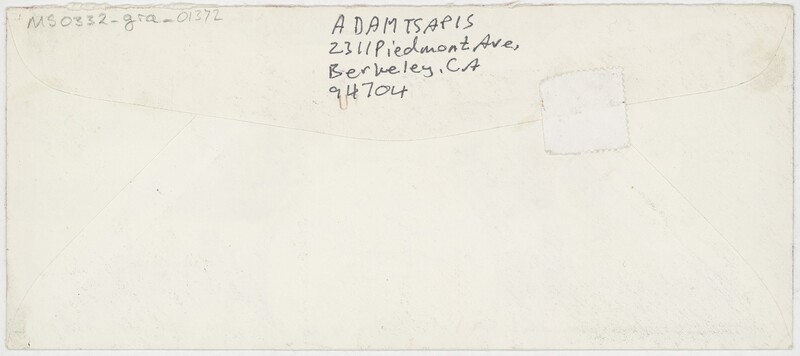 MS0332-gra-01372
ADAM TSAPIS
2311 Piedmont Ave,
Berkeley, CA
94704